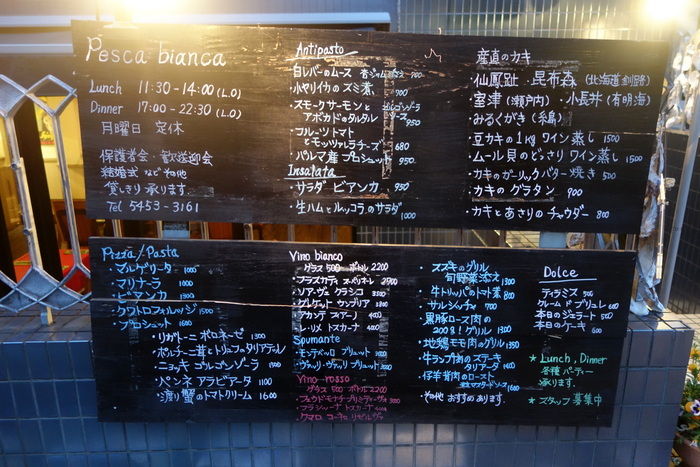 Pesca bianca
Lunch 11:30-14:00 (L.O)
Dinner 17:00-22:30 (L.O)
月曜日 定休
保護者会・歓送迎会
結婚式 など その他
貸しきり承ります
Tel 5453-3161
Antipasto
白レバーのムース 900
・小ヤリイカのズミ煮 900
・スモークサーモンと ゴルゴンゾーラ
アボカドのタルタル ソース 950
・フルーツトマト
とモッツァレラチーズ 680
・パルマ産プロシュット 950
Insalata
・サラダ ビアンカ 950
・生ハムとルッコラのサラダ 1000
産直のカキ
・仙鳳趾 ・昆布森 (北海道 釧路)
・室津 (瀬戸内) ・小長井 (有明海)
・みるくがき (糸島)
・豆カキの1kg ワイン蒸し 1500
・ムール貝のどっさり ワイン蒸し 1500
・カキのガーリックバター焼き 500
・カキのグラタン 900
・カキとあさりのチャウダー 800
Pizza/Pasta
・マルゲリータ 1000
・マリナーラ 1000
・ビアンカ 1300
・クワトロフォルッジ 1500
・プロシュート 1600
・リガトーニ ボロネーゼ 1300
・ポルチーニ茸とトリュフのタリアテッレ
・ニョッキ ゴルゴンゾーラ 1500
・ペンネ アラビアータ 1100
・渡り蟹のトマトクリーム 1600
Vino bianco
グラス 500 ボトル 2200
・フラスカティ スペリオーレ 2500
・ソアーヴェ クラシコ 3300
・グレケット ウンブリア
・レ・リメ トスカーナ 4000
Spumante
・モンテベッロ ブリュット
・ヴァッリ・ヴァッリ ブリュット
Vino rosso
グラス 500 ボトル 2200
・フラジャーナ トスカーナ
・スズキのグリル
旬野菜添え 1300
・牛トリッパのトマト煮 800
・サルシッチャ 700
・黒豚ロース肉の
200g!グリル 1300
・地鶏モモ肉のグリル 1350
・牛ランプ肉のステーキ
タリアータ 1400
・仔羊背肉のロースト
粒マスタードソース 1600
その他 おすすめあります。
Dolce
ティラミス 500
クレーム ド ブリュレ 600
本日のジェラート 500
本日のケーキ 600
★ Lunch, Dinner
各種パーティー
承ります。
★ スタッフ募集中